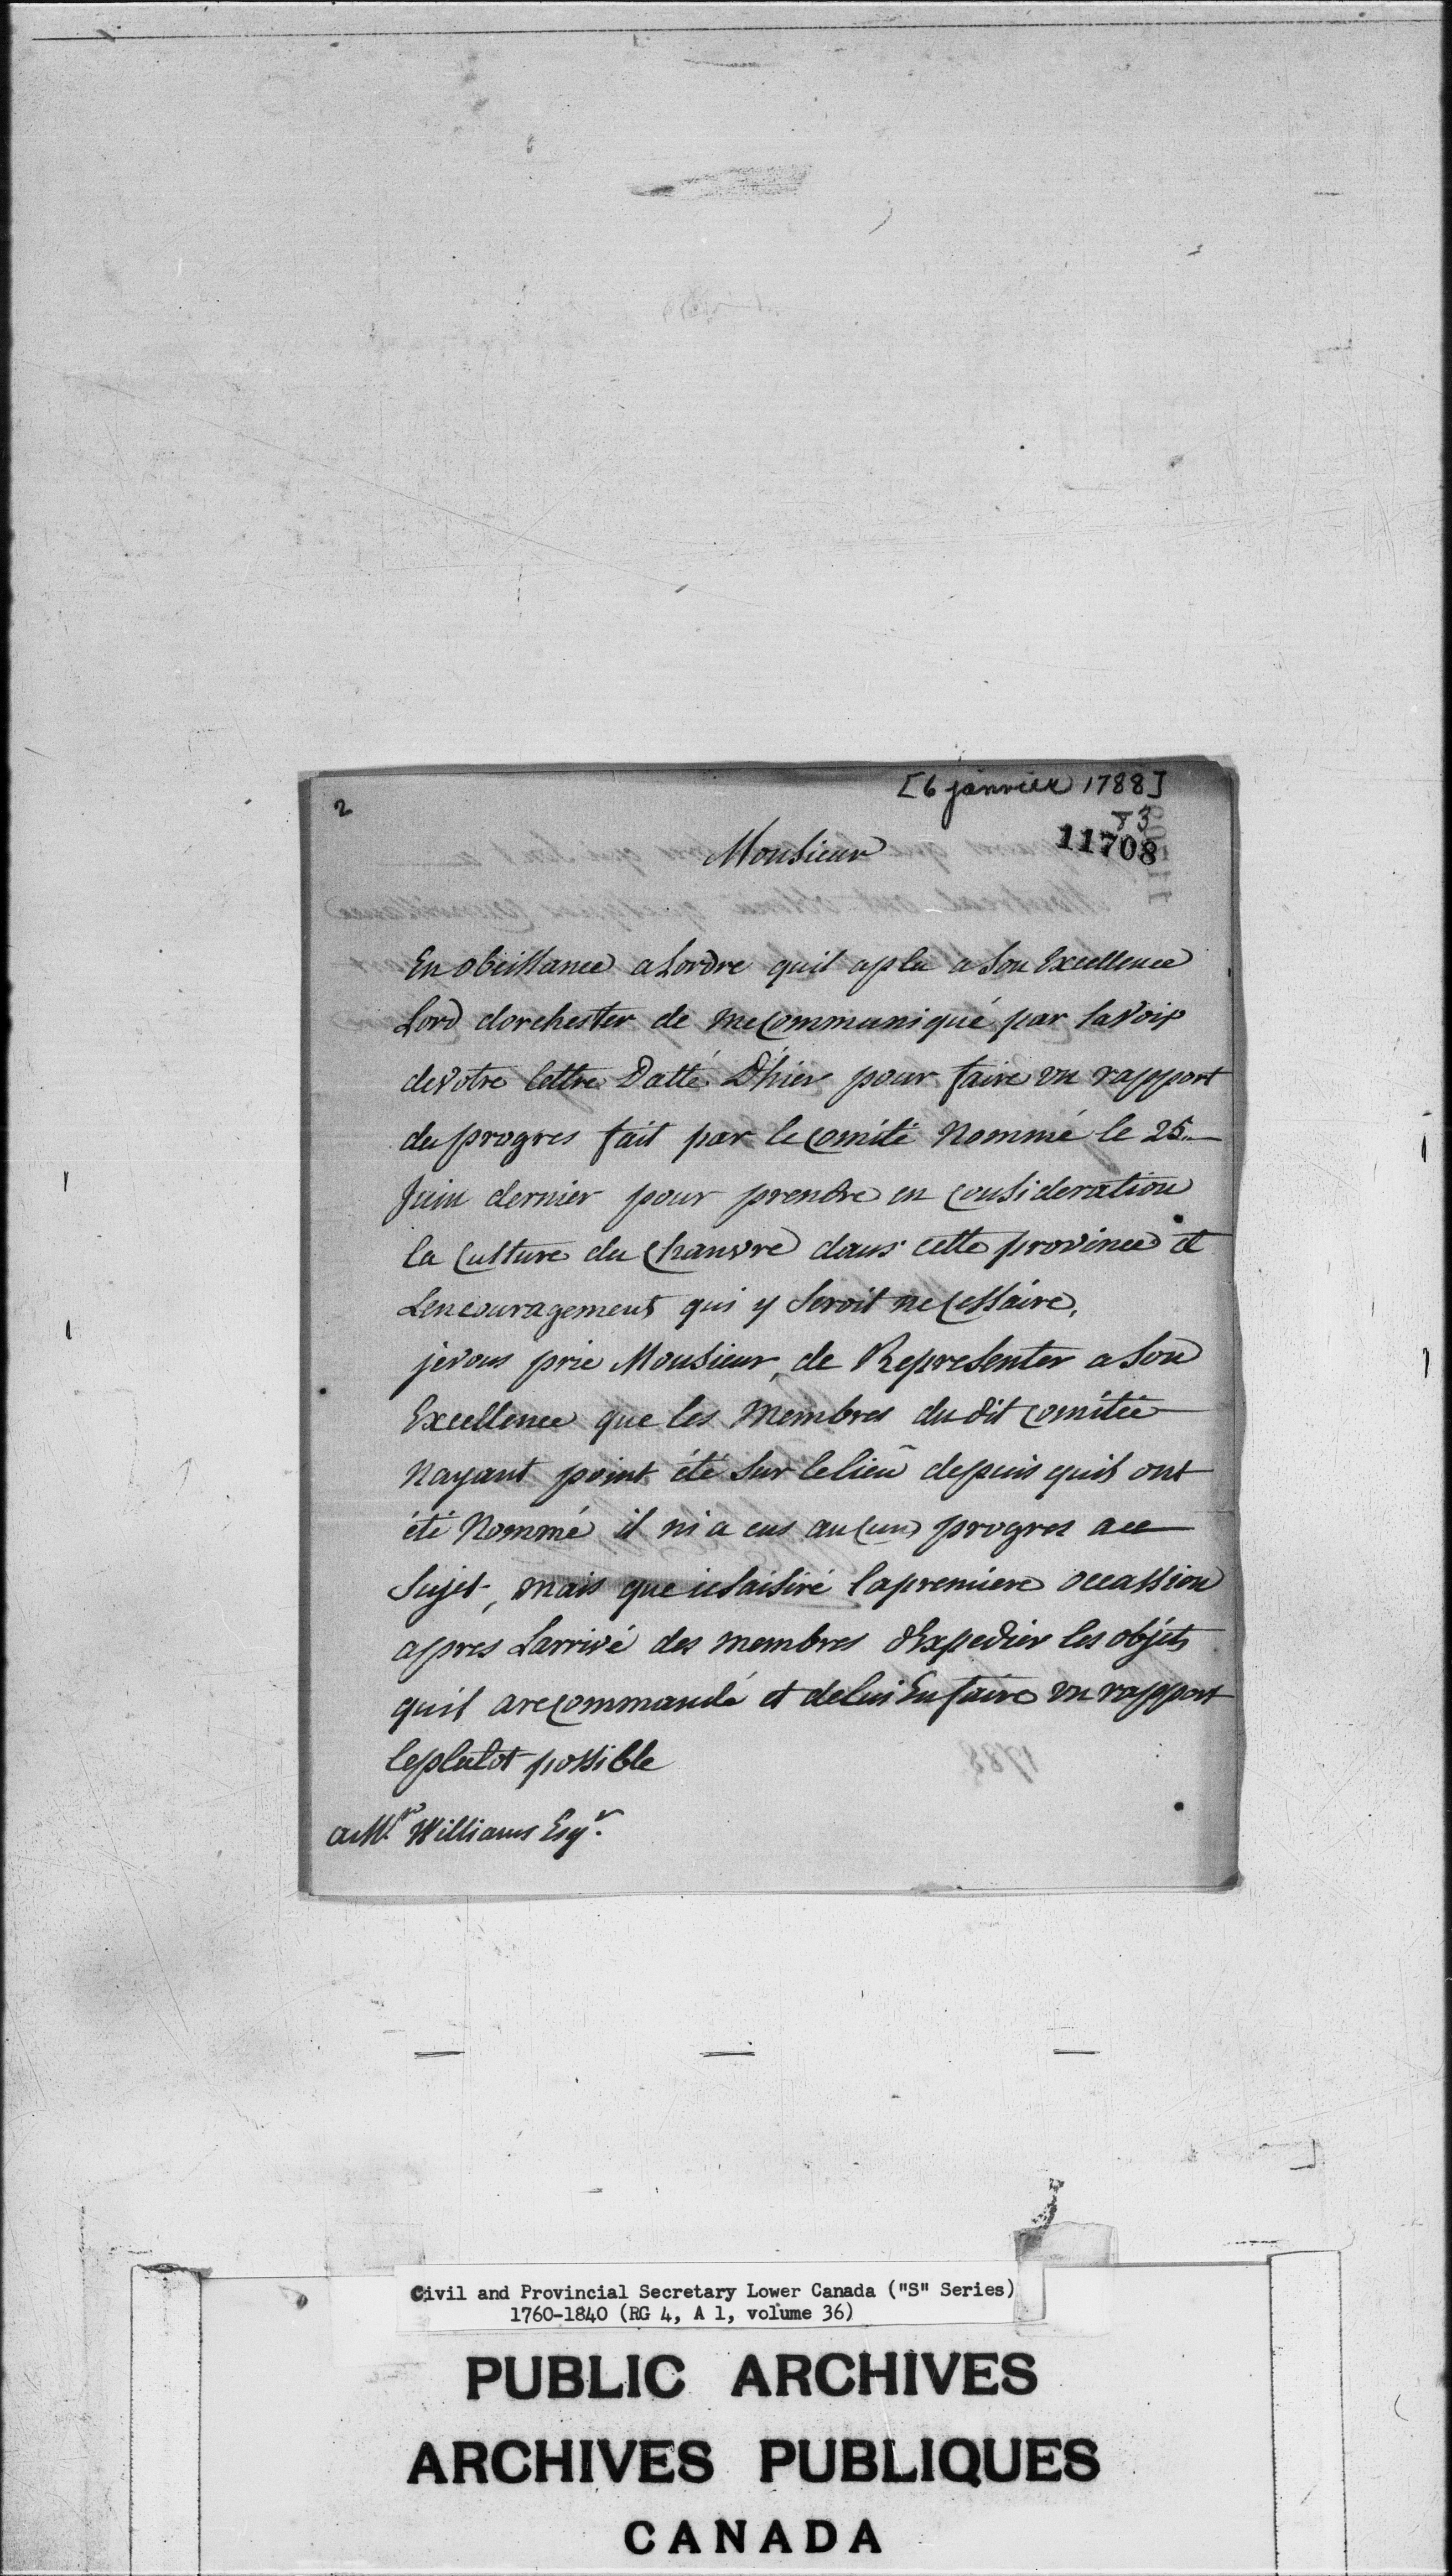 [6 janvier 1788]
2
83
11708
Monsieur
En obeissance a Lordre quil aplu a Son Excellence
Lord dorchester de mecommuniqué par lavoix
devotre lettre Datté D'hier pour faire un rapport
du progres fait par le comité Nommé le 25..
Juin dernier pour prendre en consideration
la Culture du Chanvre dans cette province et
Lencouragement qui y Seroit necessaire,
jevous prie Monsieur, de Representer a Son
Excellence que les Membres dudit comitée
Nayant point été Sur lelieu depuis quils ont
été Nommé il ni a eus aucun progres ace
Sujet, mais que jesaisiré lapremiere occassion
apres Larrivé des membres dExpedier les objets
quil arecommandé et delui Enfaire un rapport
leplutot possible
a Mr Williams Esqr.
1788
Civil and Provincial Secretary Lower Canada ("S" Series)
1760-1840 (RG 4, A 1, volume 36)
PUBLIC ARCHIVES
ARCHIVES PUBLIQUES
CANADA